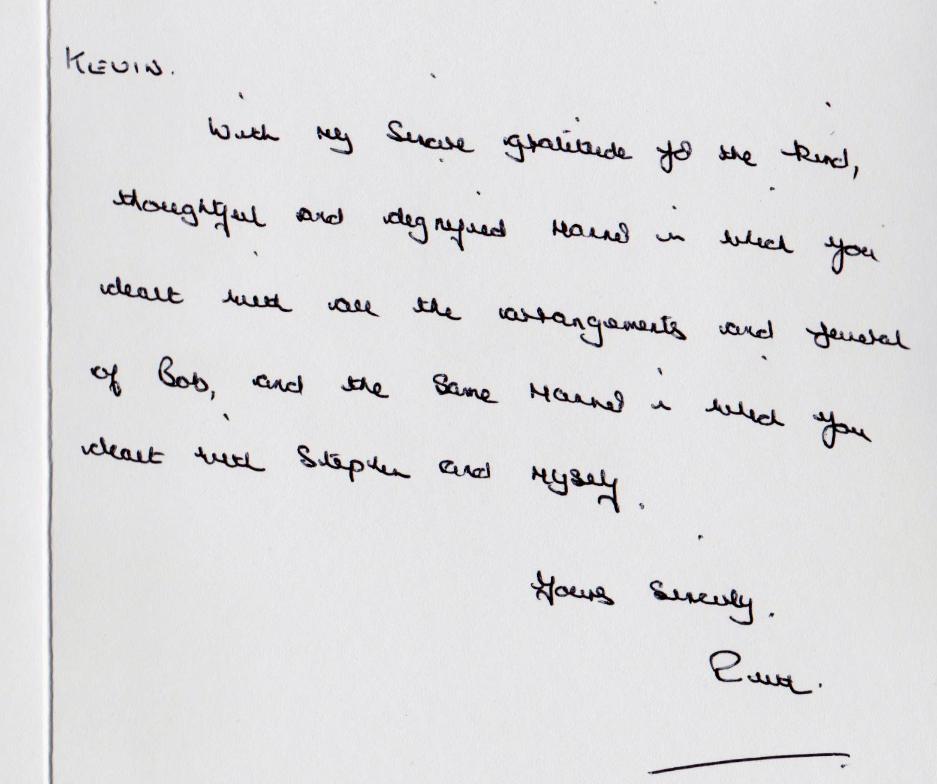 KEVIN.
With my Sincere gratitude for the kind,
thoughtful and dignified manner in which you
dealt with all the arrangements and funeral
of Bob, and the same manner in which you
dealt with Stephen and myself.
Yours Sincerely.